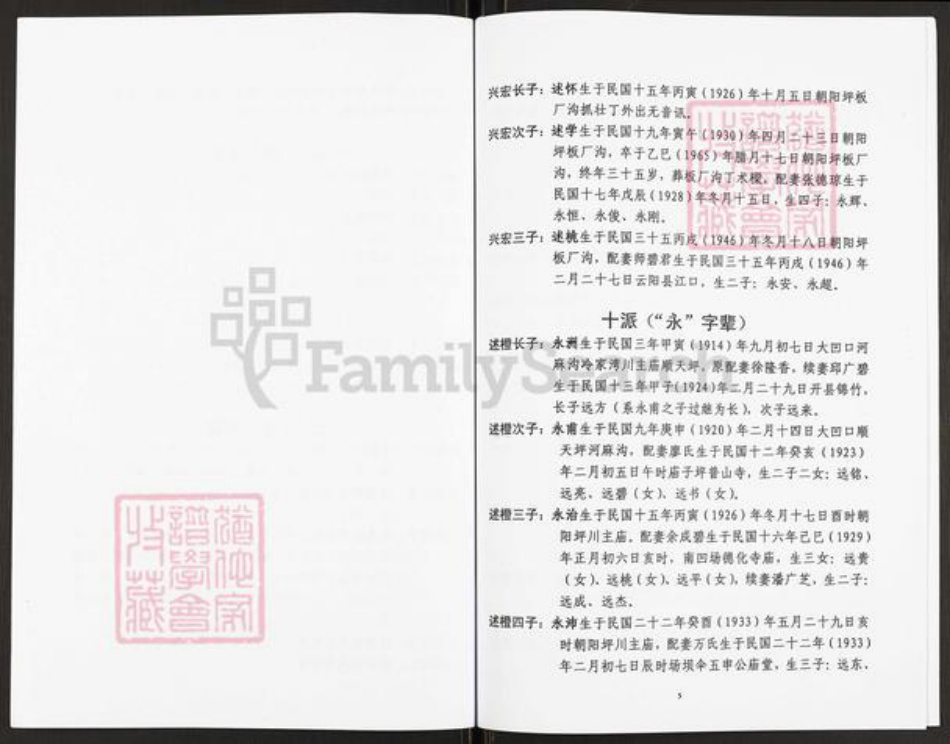 兴宏长子：述怀生于民国十五年丙寅（1926）年十月五日朝阳坪板
厂沟抓壮丁外出无音讯。
兴宏次子：述学生于民国十九年寅午（1930）年四月二十三日朝阳
坪板厂沟，卒于乙巳（1965）年腊月十七日朝阳坪板厂
沟，终年三十五岁，葬板厂沟丁木樑，配妻张德琼生于
民国十七年戊辰（1928）年冬月十五日，生四子：永辉、
永恒、永俊、永刚。
兴宏三子：述桃生于民国三十五丙戌（1946）年冬月十八日朝阳坪
板厂沟，配妻师碧君生于民国三十五年丙戌（1946）年
二月二十七日云阳县江口，生二子：永安、永超。
十派（“永”字辈）
述橙长子：永洲生于民国三年甲寅（1914）年九月初七日大凹口河
麻沟冷家湾川主庙顺天坪，原配妻徐隆香，续妻邱广碧
生于民国十三年甲子（1924）年二月二十九日开县锦竹，
长子远方（系永甫之子过继为长），次子远来。
述橙次子：永甫生于民国九年庚申（1920）年二月十四日大凹口顺
天坪河麻沟，配妻廖氏生于民国十二年癸亥（1923）
年二月初五日午时庙子坪普山寺，生二子二女：远铭、
远亮、远碧（女）、远书（女）。
述橙三子：永治生于民国十五年丙寅（1926）年冬月十七日酉时朝
阳坪川主庙，配妻余成碧生于民国十六年己巳（1929）
年正月初六日亥时，南凹场德化寺庙，生三女：远贵
（女）、远桃（女）、远平（女），续妻潘广芝，生二子：
远成、远杰。
述橙四子：永沛生于民国二十二年癸酉（1933）年五月二十九日亥
时朝阳坪川主庙，配妻万氏生于民国二十二年（1933）
年二月初七日辰时场坝伞五申公庙堂，生三子：远东、
5
FamilySearch